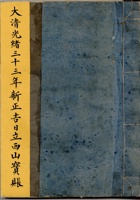 大清光緒三十三年新正吉日立西山寶賬